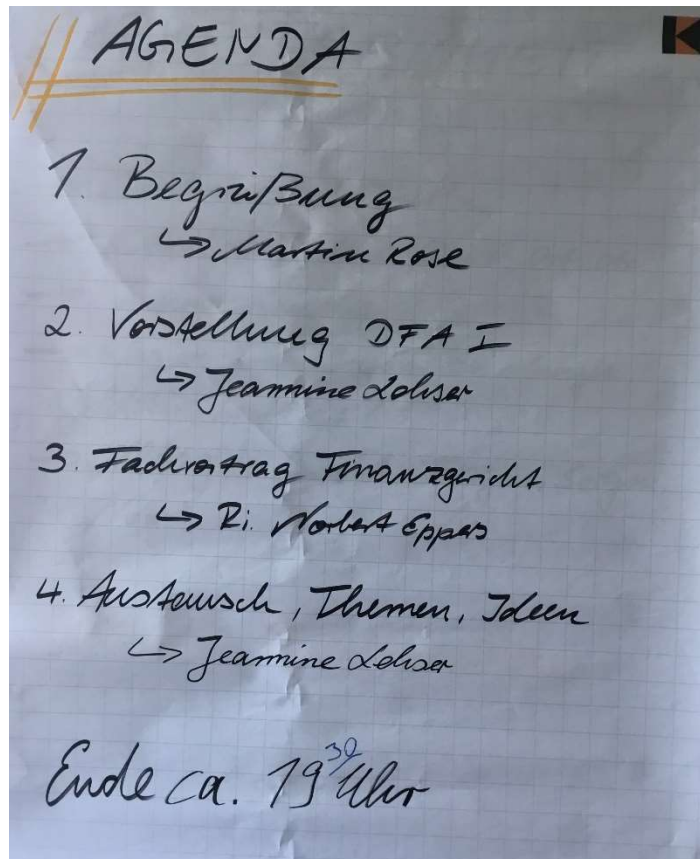 AGENDA
1. Begrüßung
↳ Martin Rose
2. Vorstellung DFA I
↳ Jeannine Lohser
3. Fachvortrag Finanzgericht
↳ Ri. Norbert Eppers
4. Austausch, Themen, Ideen
↳ Jeannine Lohser
Ende ca. 19³⁰ Uhr